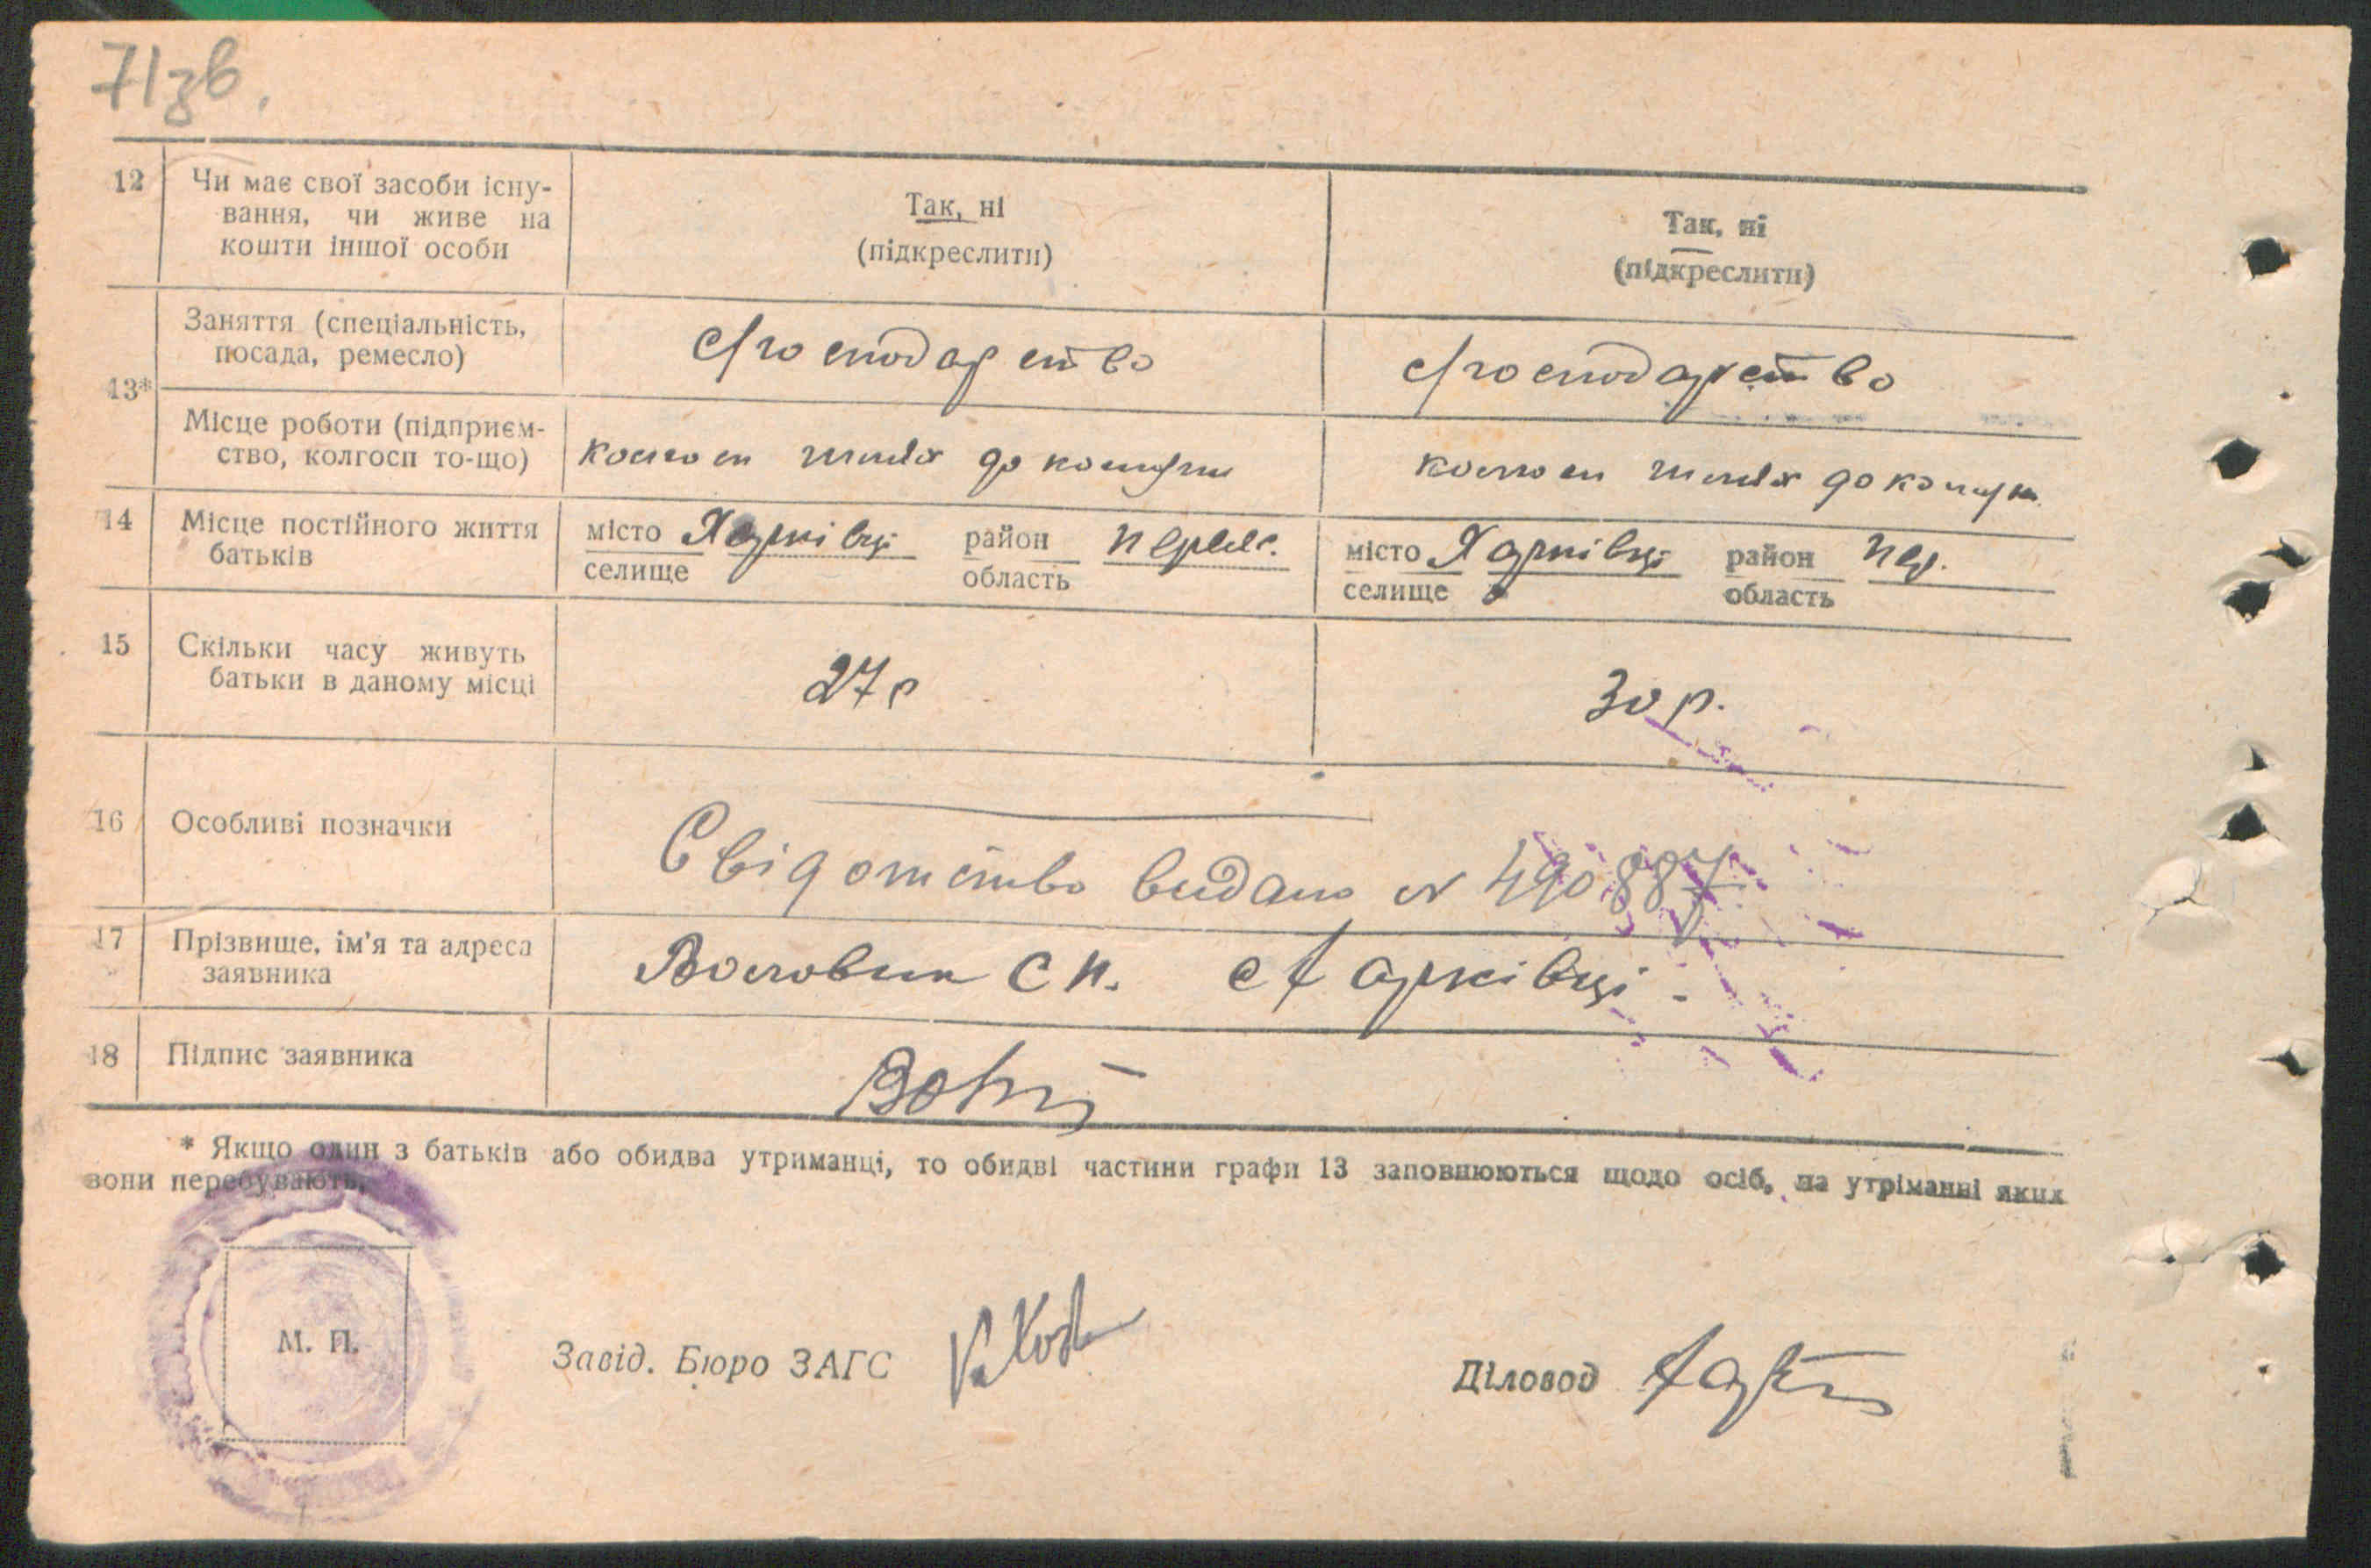 71зв.
12 Чи має свої засоби існу-
вання, чи живе на
кошти іншої особи
Так, ні
(підкреслити)
Так, ні
(підкреслити)
13*
Заняття (спеціальність,
посада, ремесло)
с/господарство
с/господарство
Місце роботи (підприєм-
ство, колгосп то-що)
колгосп шлях до комуни
колгосп шлях до комун
14 Місце постійного життя
батьків
місто Харківці район Перея.
селище область
місто Харківці район Пер.
селище область
15 Скільки часу живуть
батьки в даному місці
27 р
30 р.
16 Особливі позначки
Свідотство видано N 490887
17 Прізвище, ім'я та адреса
заявника
Воловик С П. с Харківці
18 Підпис заявника
* Якщо один з батьків або обидва утриманці, то обидві частини графи 13 заповнюються щодо осіб, на утріманні яких
вони перебувають.
М. П.
Завід. Бюро ЗАГС
Діловод